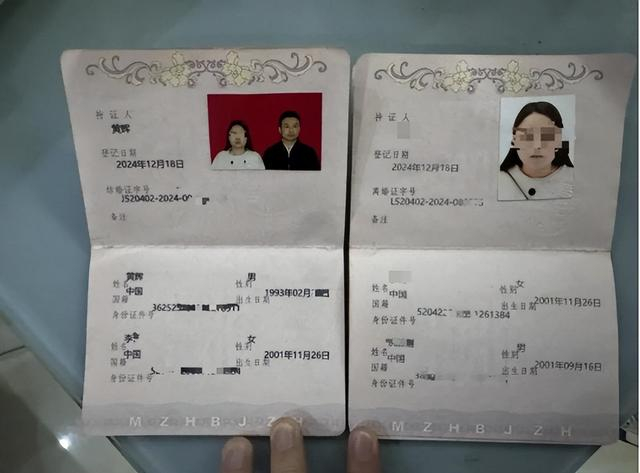 持证人
黄辉
登记日期
2024年12月18日
结婚证字号
J520402-2024-00
备注
黄辉
姓名
性别 男
中国
国籍
1993年02月
出生日期
3625
身份证件号
李
姓名
性别 女
中国
国籍
2001年11月26日
出生日期
身份证件号
MZHBJZH
持证人
登记日期
2024年12月18日
离婚证字号
L520402-2024-00
备注
姓名
性别 女
中国
国籍
2001年11月26日
出生日期
52042 1261384
身份证件号
姓名
性别 男
中国
国籍
2001年09月16日
出生日期
身份证件号
MZHBJZH